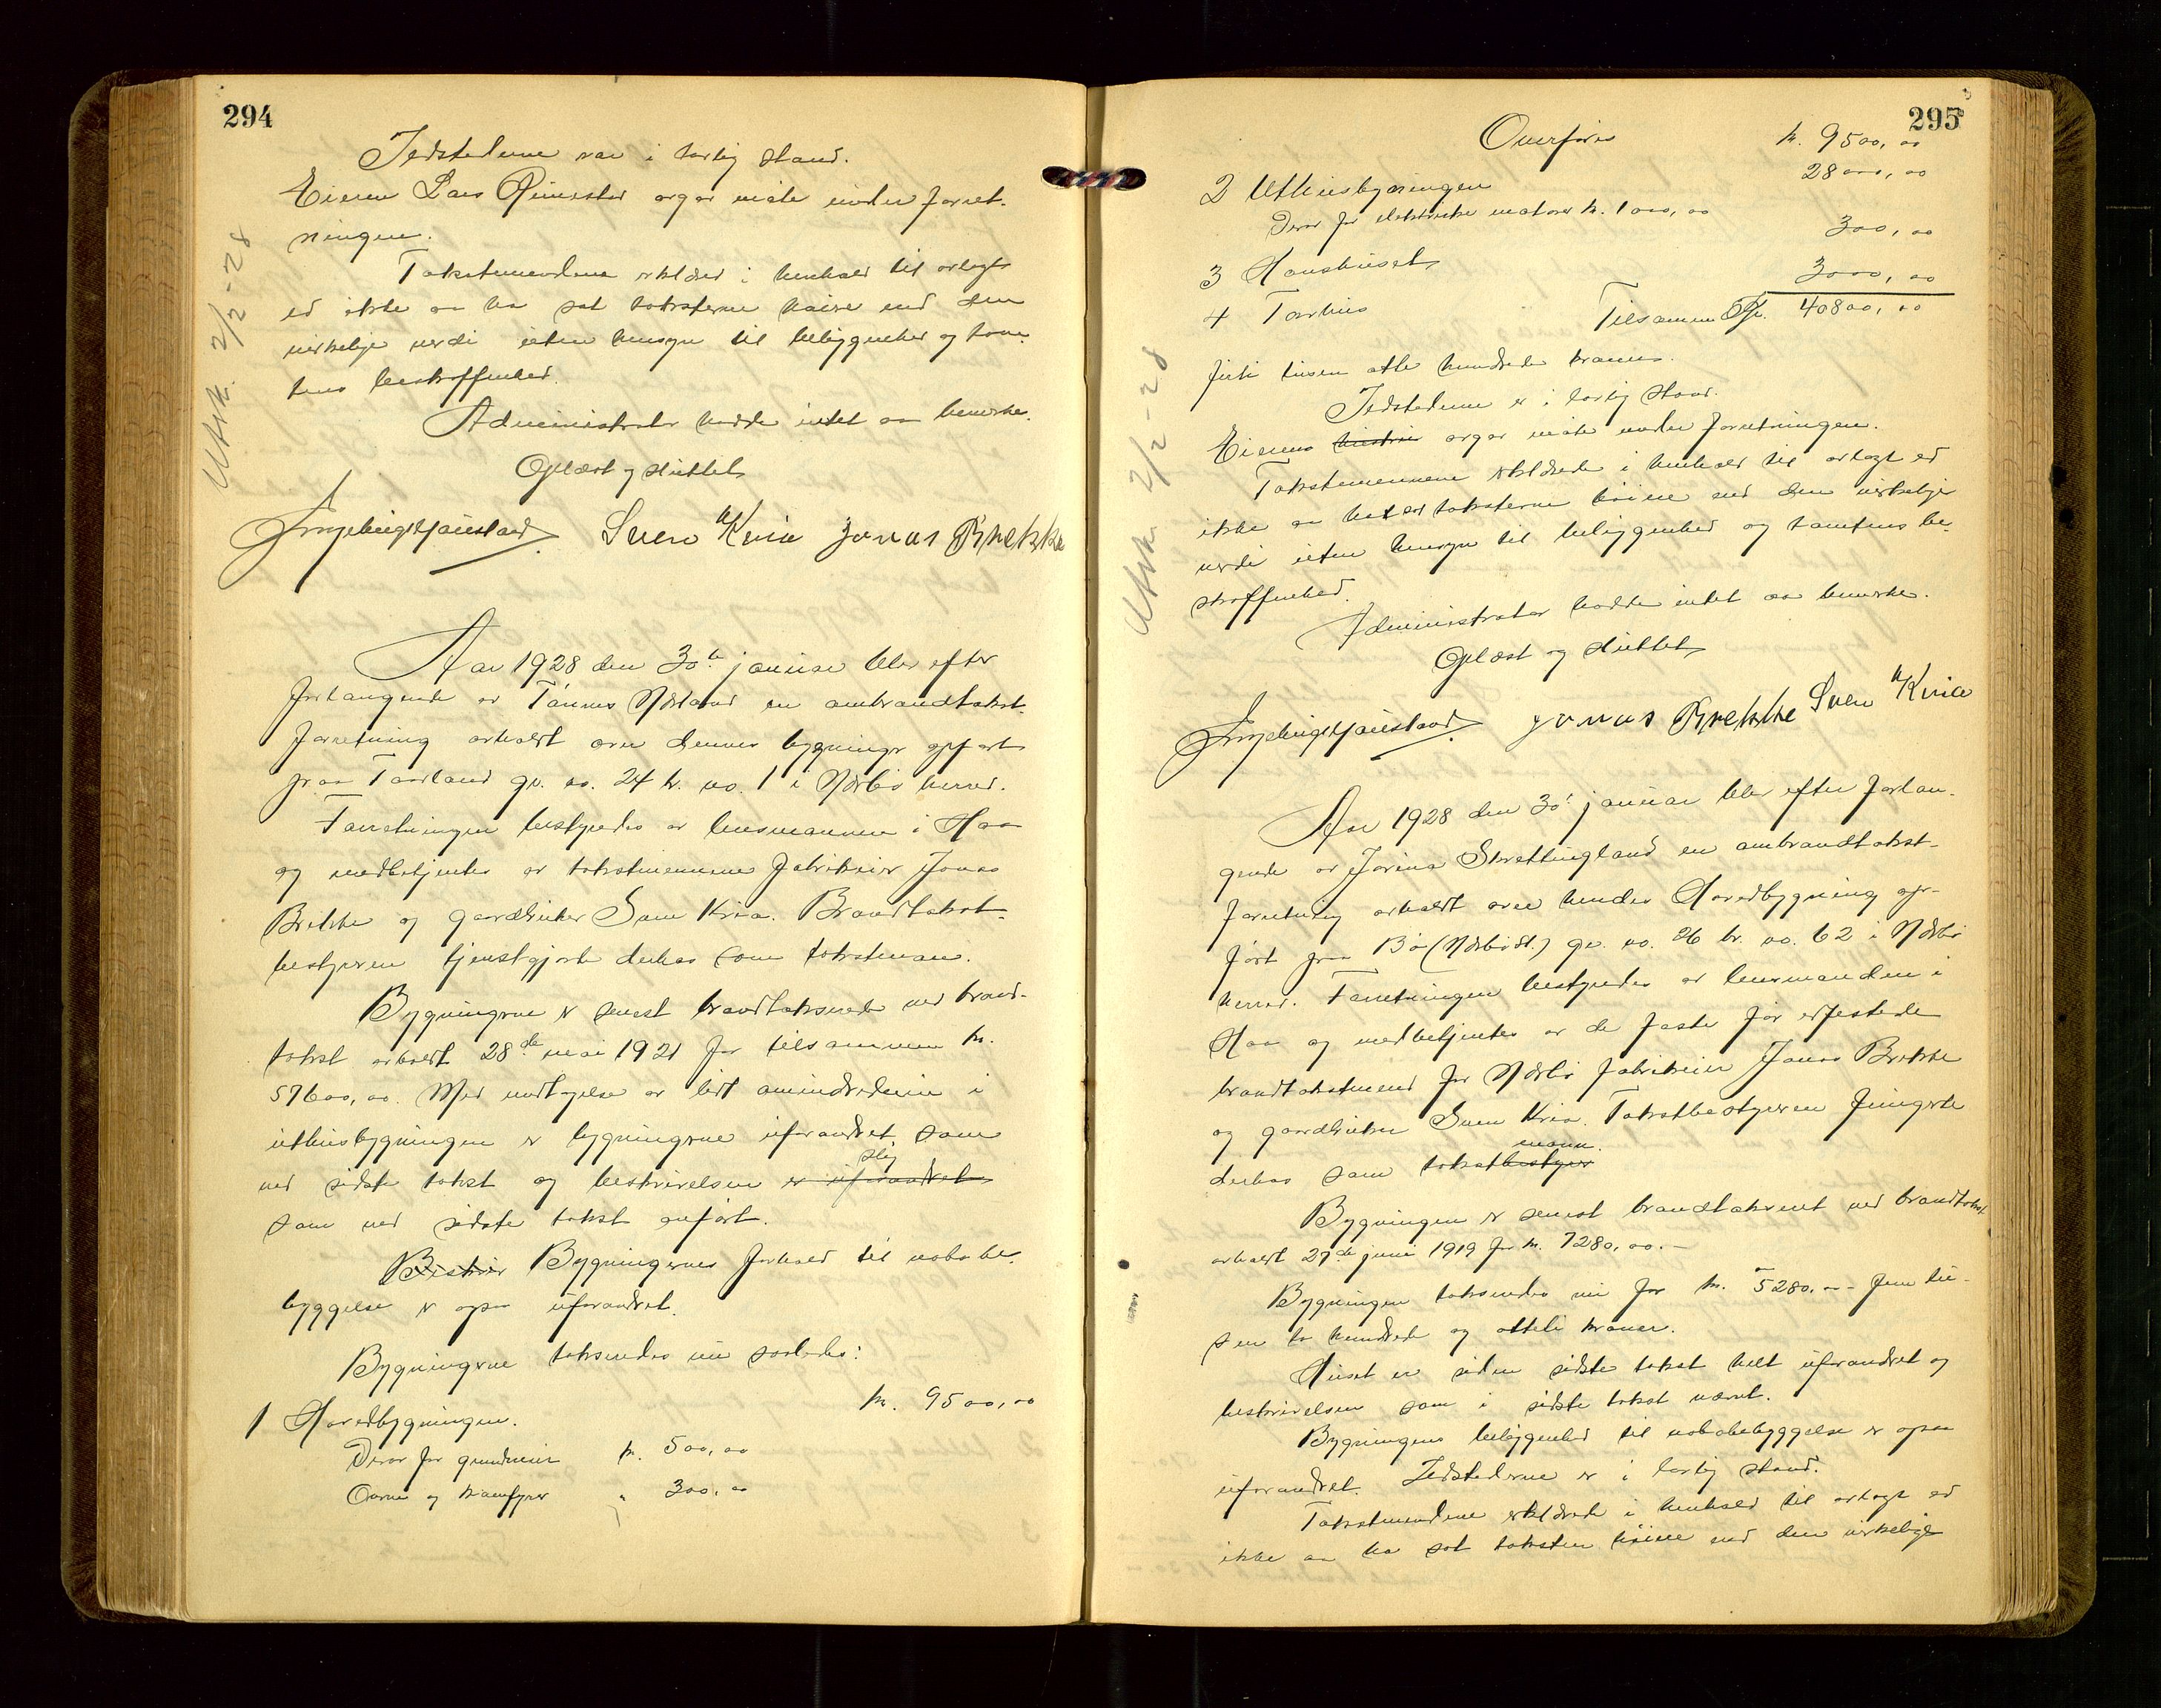 294
Ildstederne var i lovlig stand.
Eieren Lars Rimestad avgav møte under forret-
ningen.
Takstmændene erklæret i henhold til avlagt
ed ikke aa ha sat taksterne høiere end den
virkelige verdi uten hensyn til beliggenhet og tom-
tens beskaffenhed.
Administrator hadde intet aa bemerke.
Oplæst og sluttet
Sven Kvia Jonas Brekke
Utsk. 2/2-28
Aar 1928 den 30te januar blev efter
forlangende av Tønnes Nærland en ombrandtakst-
forretning avholdt over dennes bygninger opført
paa Taarland gr. no. 24 br. no. 1 i Nærbø herred.
Forretningen bestyredes av lensmannen i Haa
og medbetjentes av takstmennene fabrikeier Jonas
Brekke og gaardbruker Sven Kvia. Brandtakst-
bestyreren tjenstgjorde derhos som takstmann.
Bygningerne er senest brandtakserede ved brand-
takst avholdt 28de mai 1921 for tilsammen kr.
57600,00. Med undtagelse av lidt omindredning i
uthusbygningen er bygningerne uforandret som
ved sidste takst og beskrivelsen er uforandret slig
som ved sidste takst anført.
Beskriv Bygningernes forhold til nabobe-
byggelse er ogsaa uforandret.
Bygningerne takseredes nu saaledes:
1 Hovedbygningen. kr. 9500,00
Derav for grundmur kr. 500,00
Ovne og komfyrer " 300,00
295
Overføres kr. 9500,00
2 Uthusbygningen 28000,00
Derav for elektriske motorer kr. 1000,00
3 Hønsehuset 300,00
4 Torvhus 3000,00
Tilsammen Kr. 40800,00
firti tusen otte hundrede kroner.
Ildstederne er i lovlig stand.
Eierens hustru avgav møte under forretningen.
Takstmennene erklærede i henhold til avlagt ed
ikke aa ha sat taksterne høiere end den virkelige
verdi uten hensyn til beliggenhed og tomtens be-
skaffenhed.
Administrator hadde intet aa bemerke.
Oplæst og sluttet
Jonas Brekke Sven Kvia
Utsk 2/2-28
Aar 1928 den 30te januar blev efter forlan-
gende av Jorina Skrettingland en ombrandtakst-
forretning avholdt over hendes Hovedbygning op-
ført paa Bø (Nærbø st.) gr. no. 26 br. no. 62 i Nærbø
herred. Forretningen bestyredes av lensmanden i
Haa og medbetjentes av de faste før edfestede
brandtakstmend for Nærbø fabrikeier Jonas Brekke
og gaardbruker Sven Kvia. Takstbestyreren fungerte
derhos som takstbestyrer mann.
Bygningen er senest brandtakseret ved brandtakst
avholdt 27de juni 1919 for kr. 7280,00.-
Bygningen takseredes nu for kr. 5280.00 fem tu-
sen to hundrede og otteti kroner.
Huset er siden sidste takst helt uforandret og
beskrivelsen som i sidste takst nævnt.
Bygningens beliggenhed til nabobebyggelse er ogsaa
uforandret. Ildstederne er i lovlig stand.
Takstmendene erklærede i henhold til avlagt ed
ikke aa ha sat taksten høiere end den virkelige